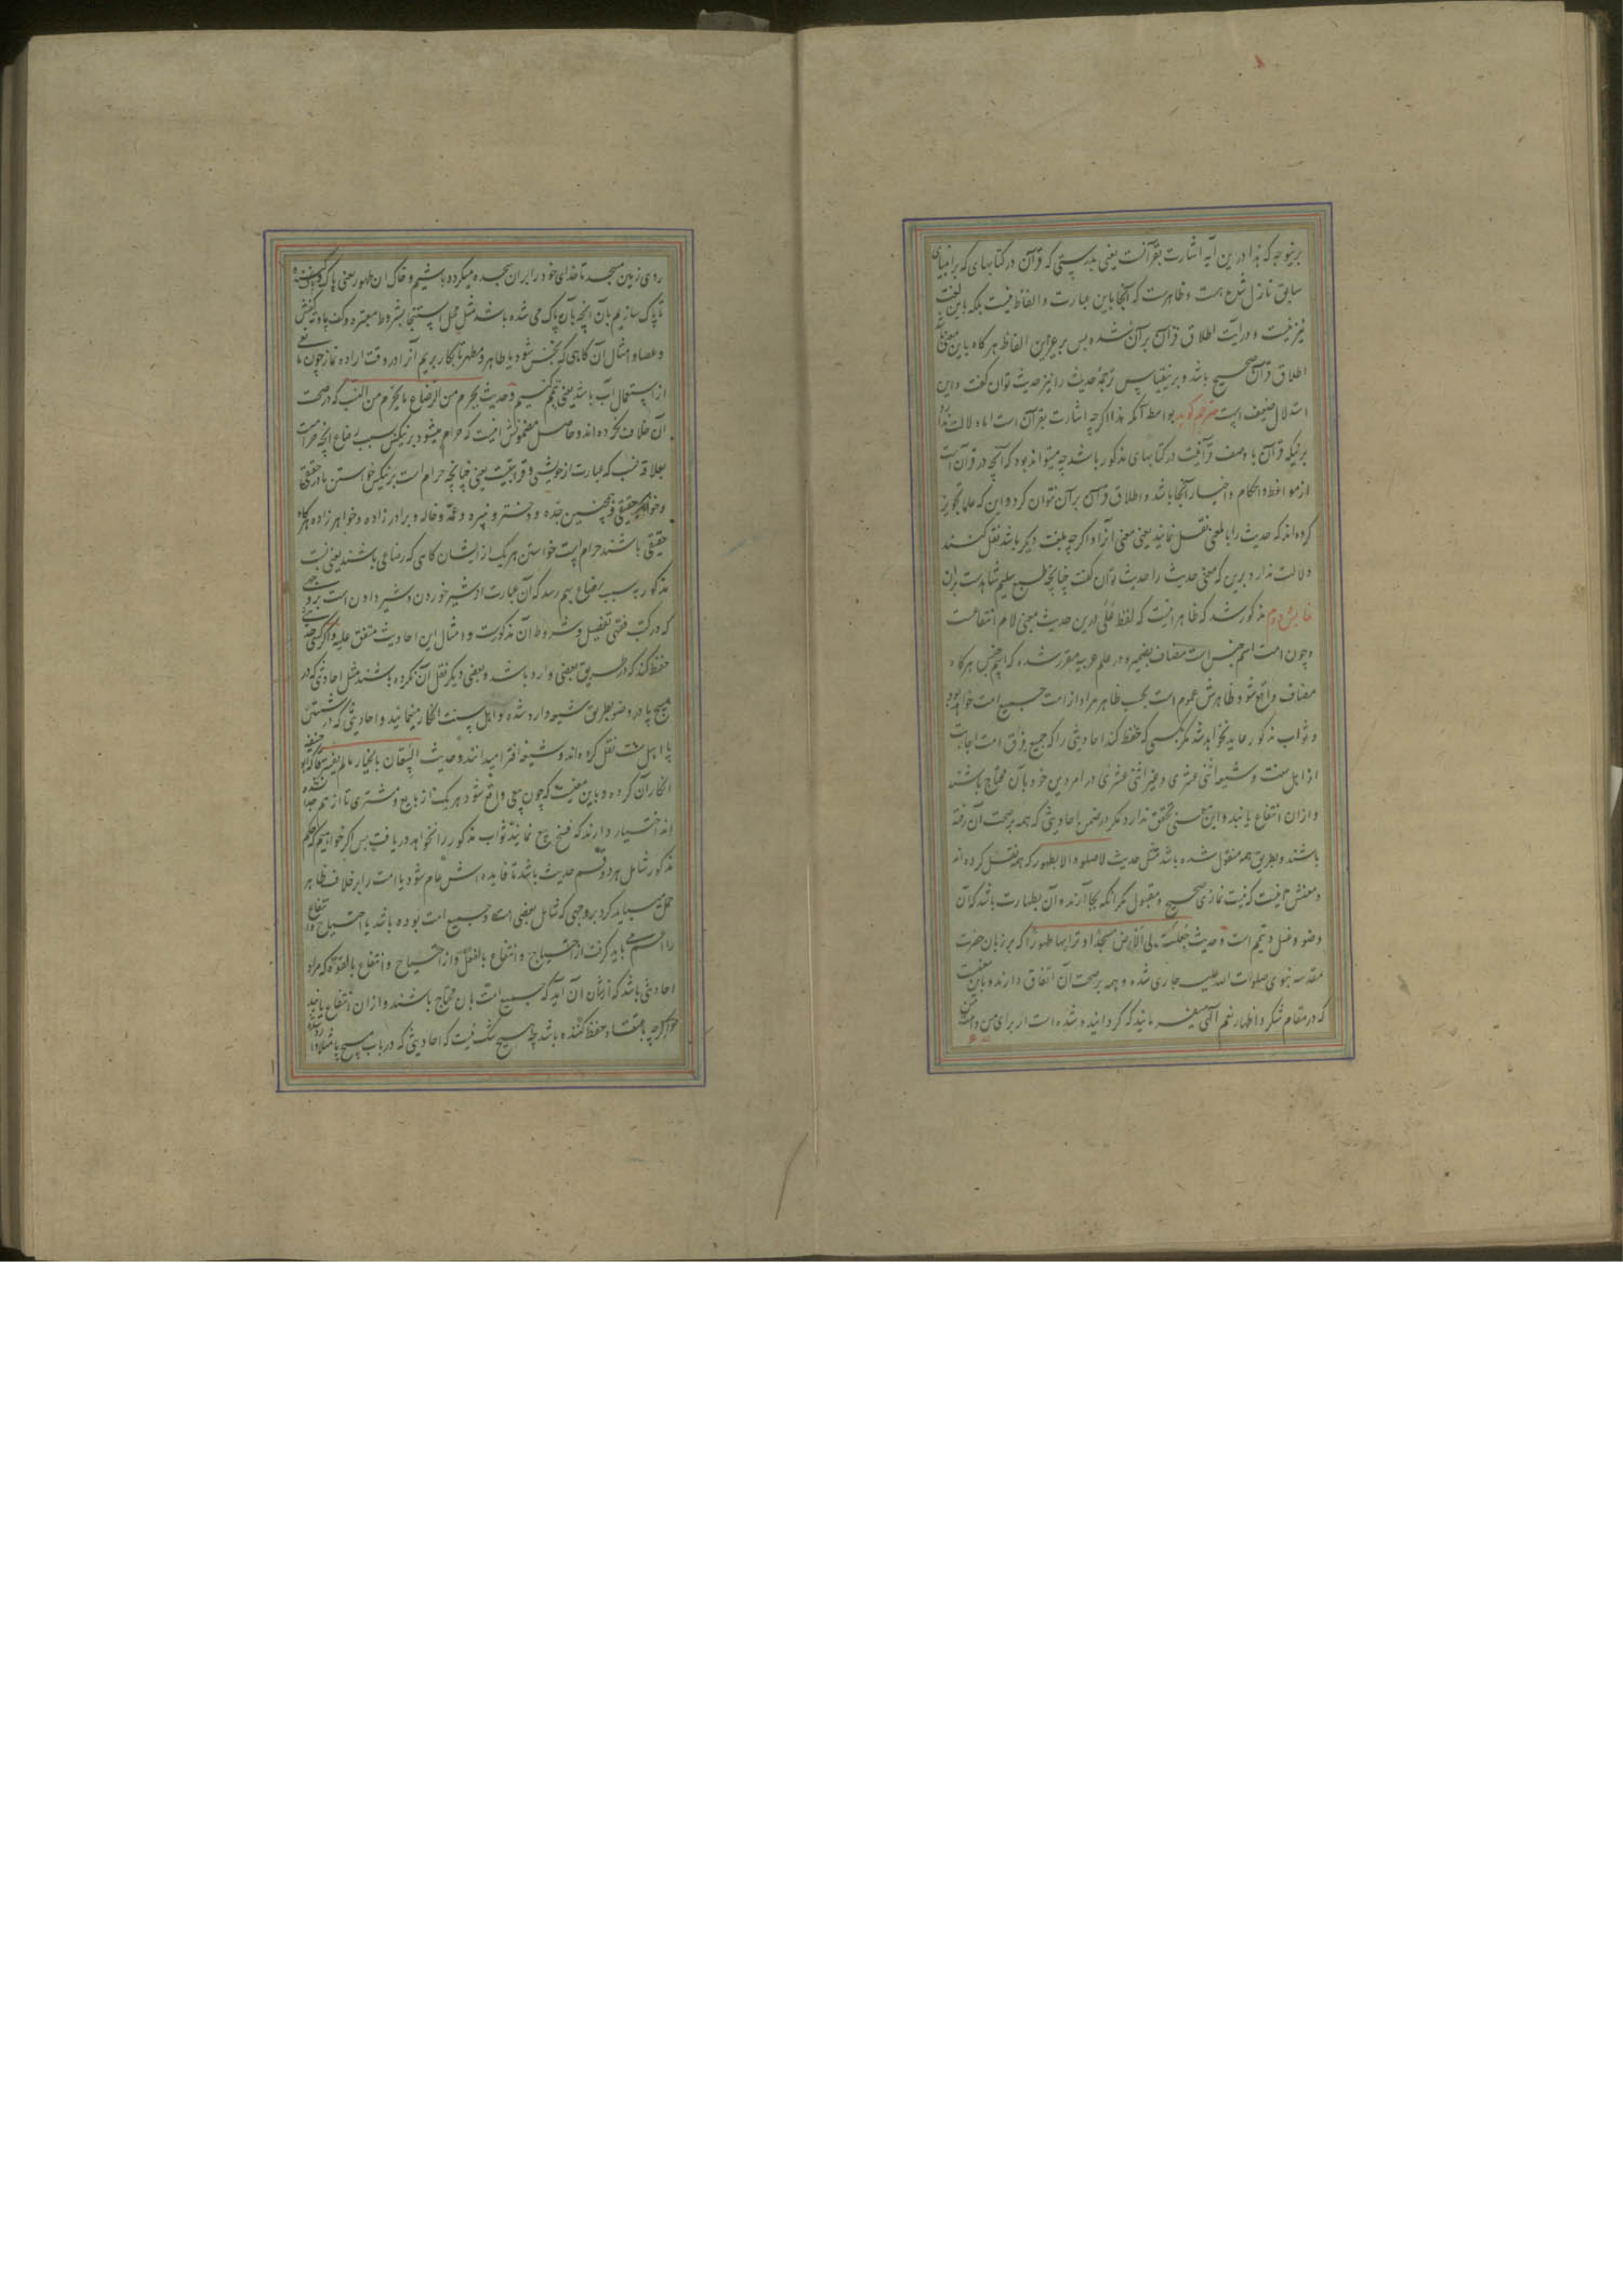 برینوجه که هذا درین آیه اشارت بقرآنست یعنی بدرستی که قرآن در کتابهای که بر انبیای
سابق نازل شده هست و ظاهرست که آنجا باین عبارت و الفاظ نیست بلکه باین لغت
نیز نیست و در آیت اطلاق قرآن بر آن شده پس بر غیر این الفاظ هر گاه باین معنی باشد
اطلاق قرآن صحیح باشد و برینقیاس ترجمهٔ حدیث را نیز حدیث توان گفت و این
استدلال ضعیف است مترجم گوید بواسطه آنکه هذا اگرچه اشارت بقرآن است اما دلالت ندارد
برینکه قرآن با وصف قرآنیت در کتابهای مذکور باشد چه میتواند بود که آنچه در قرآن است
از مواعظ و احکام و اخبار آنجا باشد و اطلاق قرآن بر آن نتوان کرد و این که علما تجویز
کرده‌اند که حدیث را بالمعنی نقل نمایند یعنی معنی آنرا و اگرچه بلغت دیگر باشد نقل کنند
دلالت ندارد برین که معنی حدیث را حدیث توان گفت چنانچه طبع سلیم شاهدست بران
نمایش دوم مذکور شد که ظاهر اینست که لفظ علی درین حدیث بمعنی لام انتفاعست
و چون امت اسم جنس است مضاف بضمیر و در علم عربیه مقرر شده که اسم جنس هرگاه
مضاف واقع شود ظاهرش عموم است بحسب ظاهر مراد از امت جمیع امت خواهد بود
و ثواب مذکور عاید نخواهد شد مگر بکسی که حفظ کند احادیثی را که جمیع فرق امت اجابت
از اهل سنت و شیعه اثنی عشری و غیر اثنی عشری در امر دین خود بآن محتاج باشند
و ازان انتفاع یابند و این معنی تحقق ندارد مگر در ضمن احادیثی که همه بر صحت آن رفته
باشند و بطریق همه منقول شده باشد مثل حدیث لا صلوه الا بطهور که همه نقل کرده‌اند
و معنیش اینست که نیست نمازی صحیح و مقبول مگر آنکه بجا آرند و آن بطهارت باشد که آن
وضو و غسل و تیمم است و حدیث جعلت لی الارض مسجدا و ترابها طهورا که بر زبان حضرت
مقدسه نبوی صلوات الله علیه جاری شده و همه بر صحت آن اتفاق دارند و باین معنیست
که در مقام شکر و اظهار نعم الهی میفرمایند که گردانیده شده است از برای من و امت من
روی زمین مسجد تا خدای خود را بران سجده میکرده باشیم و خاک آن طهور یعنی پاک و پاک کننده
تا پاک سازیم بآن آنچه بآن پاک می شده باشد مثل محل استنجا بشروط معتبره و کف پا و ته کفش
و عصا و امثال آن گاهی که نجس شود یا طاهر و مطهر تا بکار بریم آنرا در وقت اراده نماز چون مانعی
از استعمال آب باشد یعنی تیمم کنیم و حدیث یحرم من الرضاع ما یحرم من النسب که در صحت
آن خلاف نکرده‌اند و حاصل مضمونش اینست که حرام میشود بر نیکس بسبب رضاع آنچه حرامست
بعلاقه نسب که عبارت از خویشی و قرابتیست یعنی چنانچه حرام است بر نیکس خواستن مادر حقیقی
و خواهر حقیقی و همچنین جده و دختر و نبیره و عمه و خاله و برادر زاده و خواهر زاده هرگاه
حقیقی باشند حرام است خواستن هر یک از ایشان گاهی که رضاعی باشند یعنی نسبت
مذکور به سبب رضاع بهم رسد که آن عبارت از شیر خوردن و شیر دادن است بر وجهی
که در کتب فقهی تفصیل و شروط آن مذکورست و امثال این احادیث متفق علیه و اگر کسی حدیثی
حفظ کند که در طریق بعضی وارد باشد و بعضی دیگر نقل آن نکرده باشند مثل احادیثی که در
مسح پا در وضو بطریق شیعه وارد شده و اهل سنت انکار مینمایند و احادیثی که در شستن
پا اهل سنت نقل کرده‌اند و شیعه افترا میدانند و حدیث البیعان بالخیار ما لم یفترقا که ابو حنیفه
انکار آن کرده و باین معنیست که چون بیعی واقع شود هر یک از بایع و مشتری تا از هم جدا نشده
اند اختیار دارند که فسخ بیع نمایند ثواب مذکور را نخواهد دریافت پس اگر خواهیم که حکم
مذکور شامل هر دو قسم حدیث باشد تا فایده اش عام شود یا امت را بر خلاف ظاهر
حمل میباید کرد بر وجهی که شامل بعضی امت و جمیع امت بوده باشد یا احتیاج و انتفاع
را اعم باید گرفت از احتیاج و انتفاع بالفعل و از احتیاج و انتفاع بالقوه که مراد
احادیثی باشد که از شأن آن آید که جمیع امت بان محتاج باشند و ازان انتفاع یابند
اگرچه باعتقاد حفظ کننده باشد چه هیچ شک نیست که احادیثی که در باب مسح پا مثلا وارد